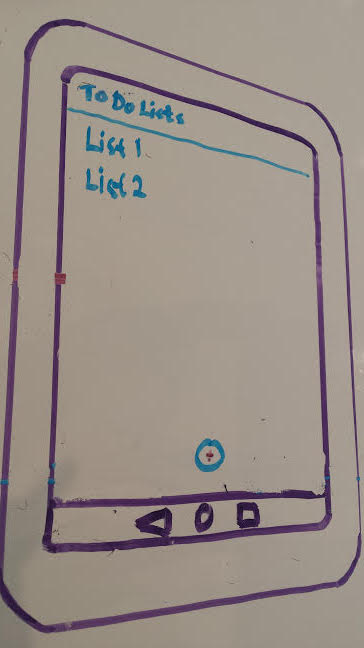 To Do Lists
List 1
List 2
+